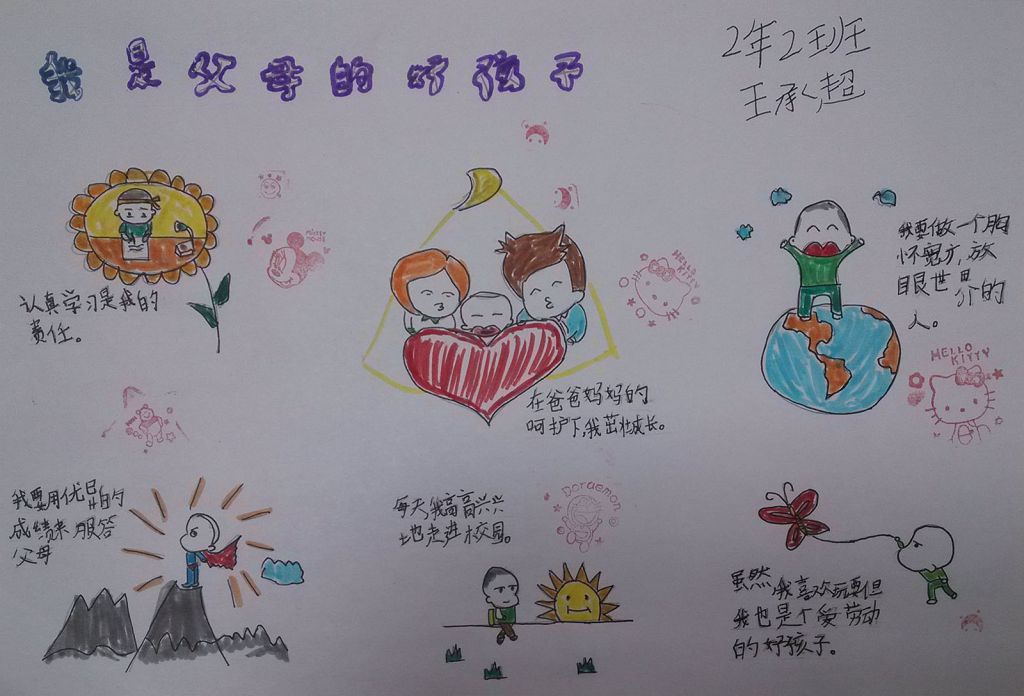 我是父母的好孩子
2年2班
王承超
认真学习是我的
责任。
MICKEY
MOUSE
HELLO
KITTY
在爸爸妈妈的
呵护下,我茁壮成长。
我要做一个胸
怀宽广,放
眼世界的
人。
HELLO
KITTY
我要用优异的
成绩来服答
父母
每天我高高兴兴
地走进校园。
Doraemon
虽然我喜欢玩耍但
我也是个爱劳动
的好孩子。